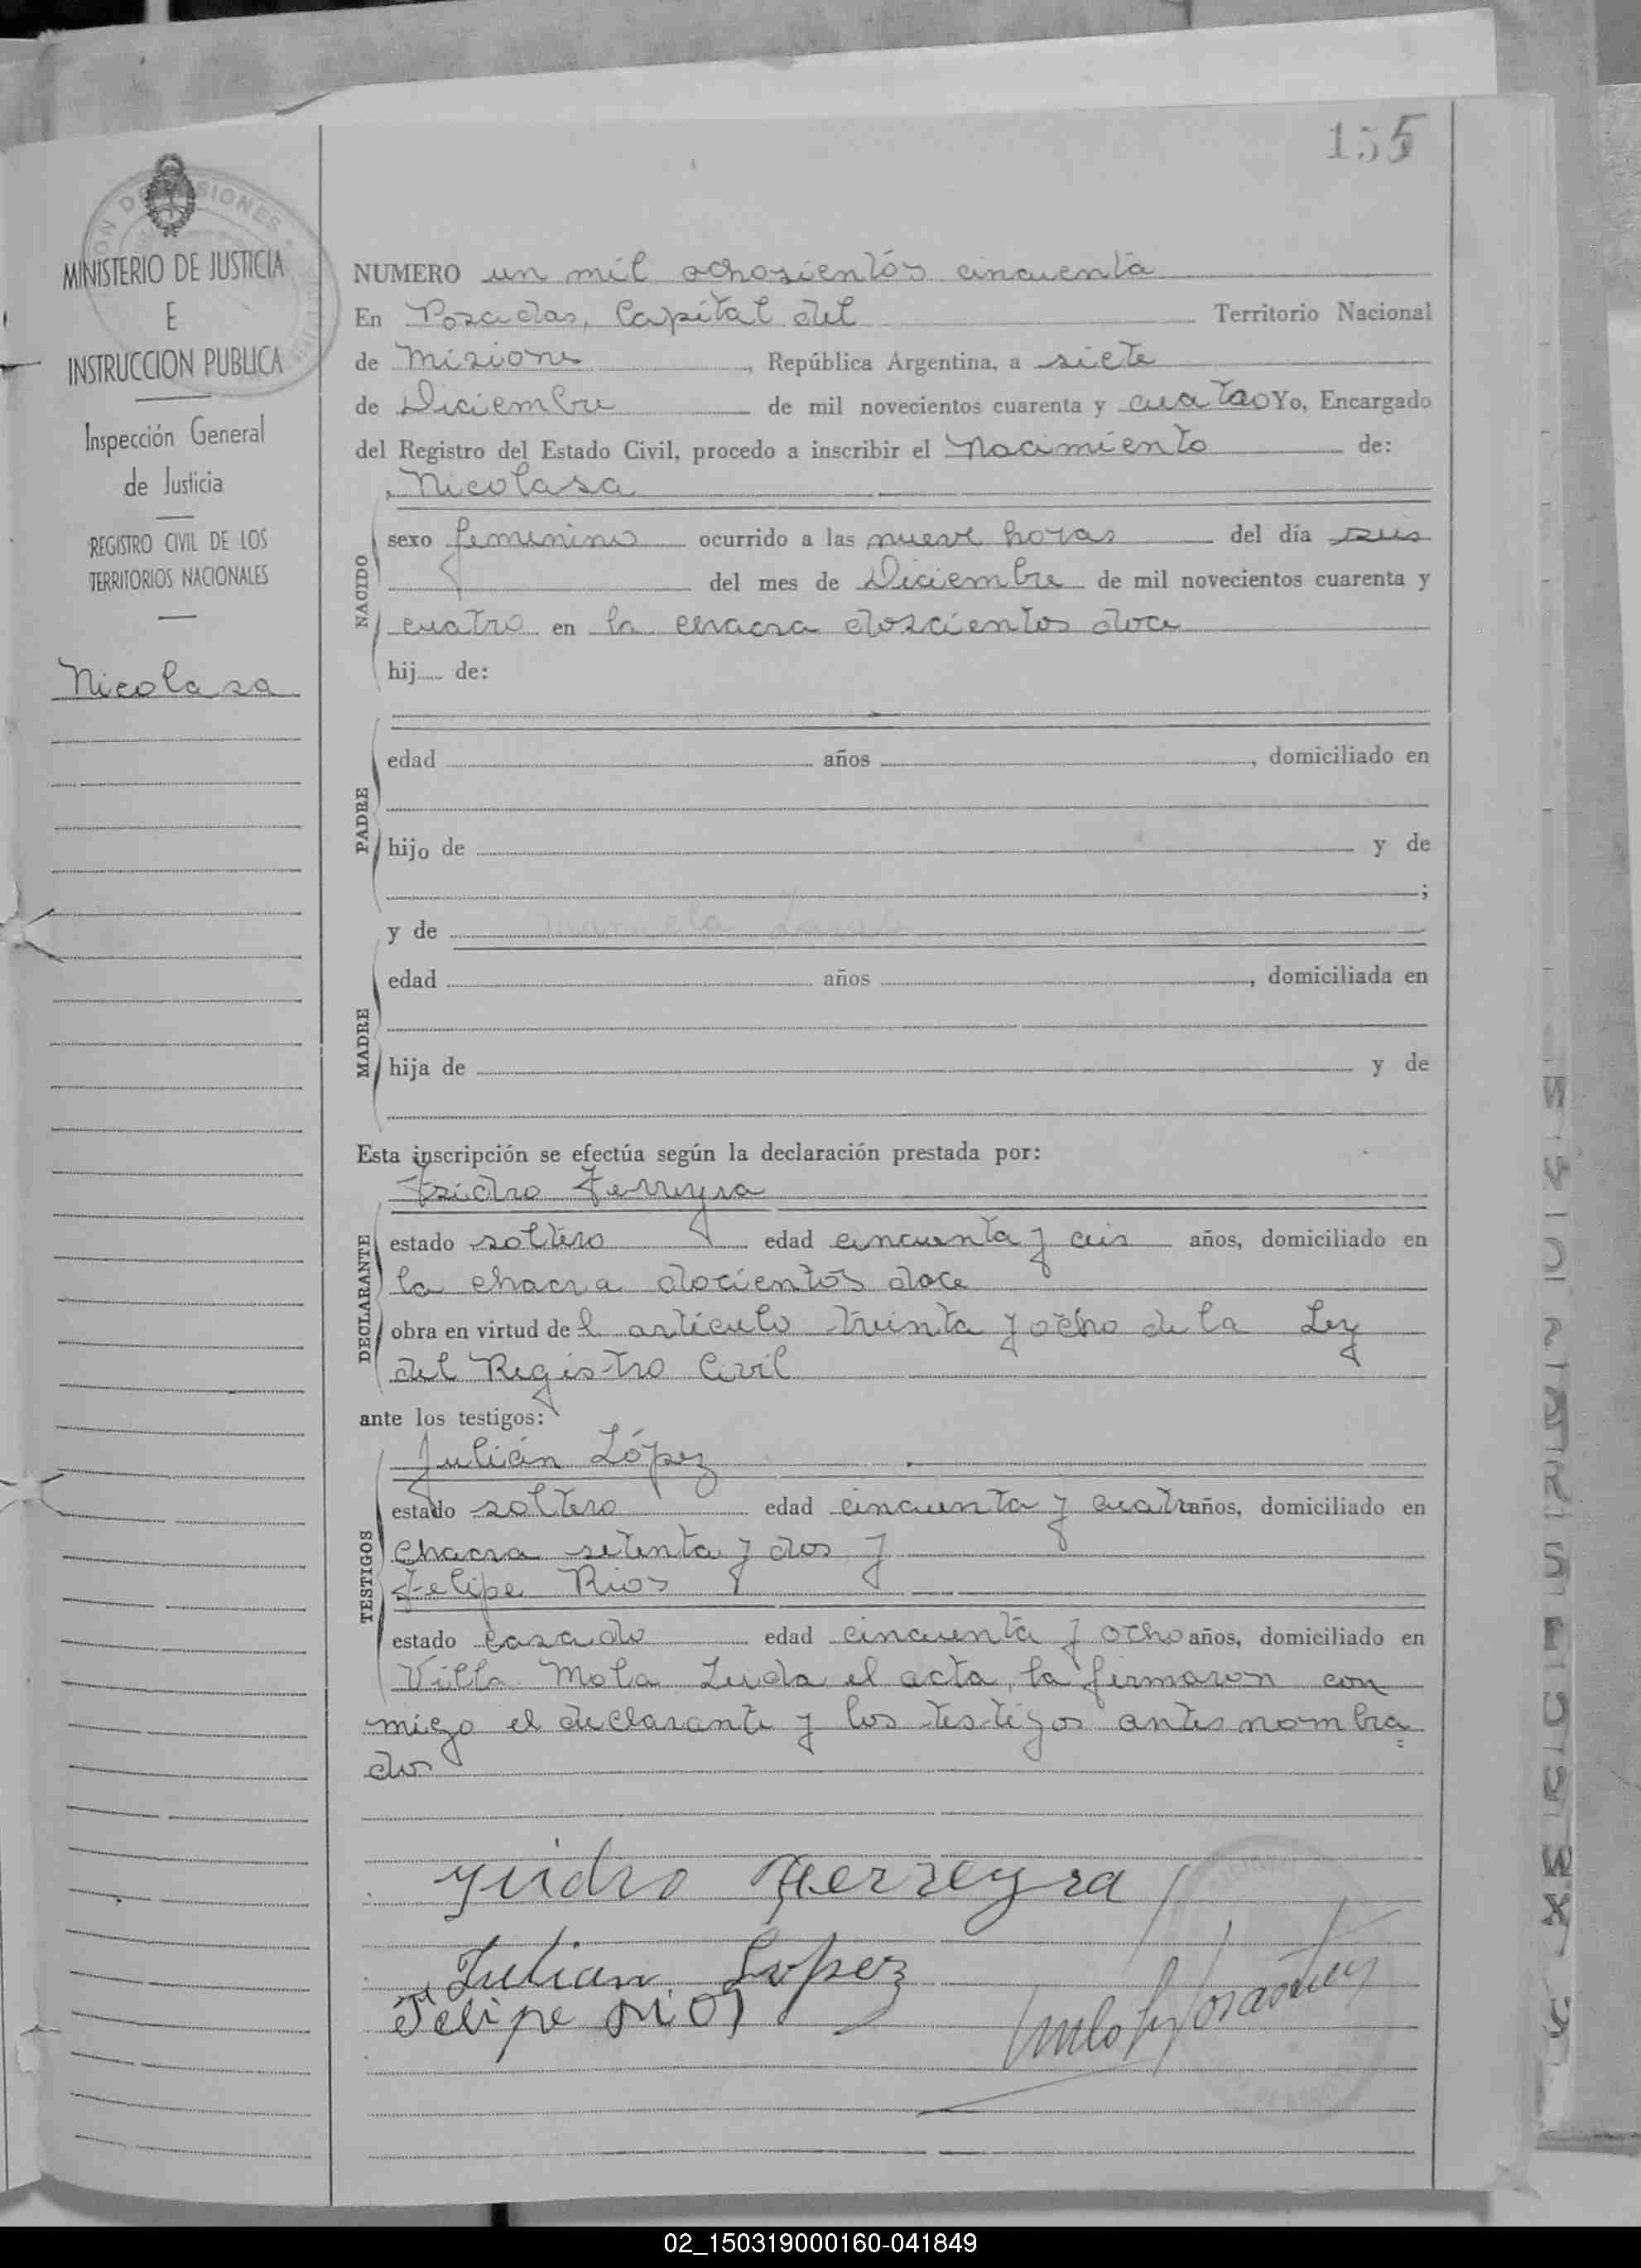 155
MINISTERIO DE JUSTICIA
E
INSTRUCCION PUBLICA
Inspección General
de Justicia
REGISTRO CIVIL DE LOS
TERRITORIOS NACIONALES
Nicolasa
NUMERO un mil ochosientós cincuenta
En Posadas, Capital del Territorio Nacional
de Misiones, República Argentina, a siete
de Diciembre de mil novecientos cuarenta y cuatro Yo, Encargado
del Registro del Estado Civil, procedo a inscribir el Nacimiento de:
Nicolasa
NACIDO
sexo femenino ocurrido a las nueve horas del día seis
del mes de Diciembre de mil novecientos cuarenta y
cuatro en la chacra doscientos doce
hij de:
PADRE
edad años , domiciliado en
hijo de y de
;
y de Manuela
MADRE
edad años , domiciliada en
hija de y de
Esta inscripción se efectúa según la declaración prestada por:
Isidro Ferreyra
DECLARANTE
estado soltero edad cincuenta y ceis años, domiciliado en
la chacra docientos doce
obra en virtud del articulo treinta y ocho de la Ley
del Registro Civil
ante los testigos:
Julián López
TESTIGOS
estado soltero edad cincuenta y cuatro años, domiciliado en
Chacra setenta y dos y
Felipe Rios
estado casado edad cincuenta y ocho años, domiciliado en
Villa Mola Leida el acta, la firmaron con
migo el declarante y los testigos antes nombra=
dos
Ysidro Ferreyra
Julian López
Felipe Rios
02_150319000160-041849